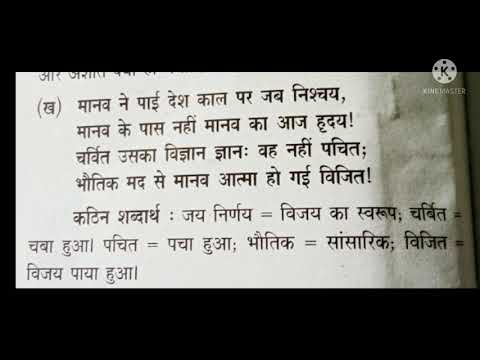 (ख) मानव ने पाई देश काल पर जब निश्चय,
मानव के पास नहीं मानव का आज हृदय!
चर्वित उसका विज्ञान ज्ञानः वह नहीं पचित;
भौतिक मद से मानव आत्मा हो गई विजित!
कठिन शब्दार्थ : जय निर्णय = विजय का स्वरूप; चर्बित =
चबा हुआ। पचित = पचा हुआ; भौतिक = सांसारिक; विजित =
विजय पाया हुआ।
KINEMASTER